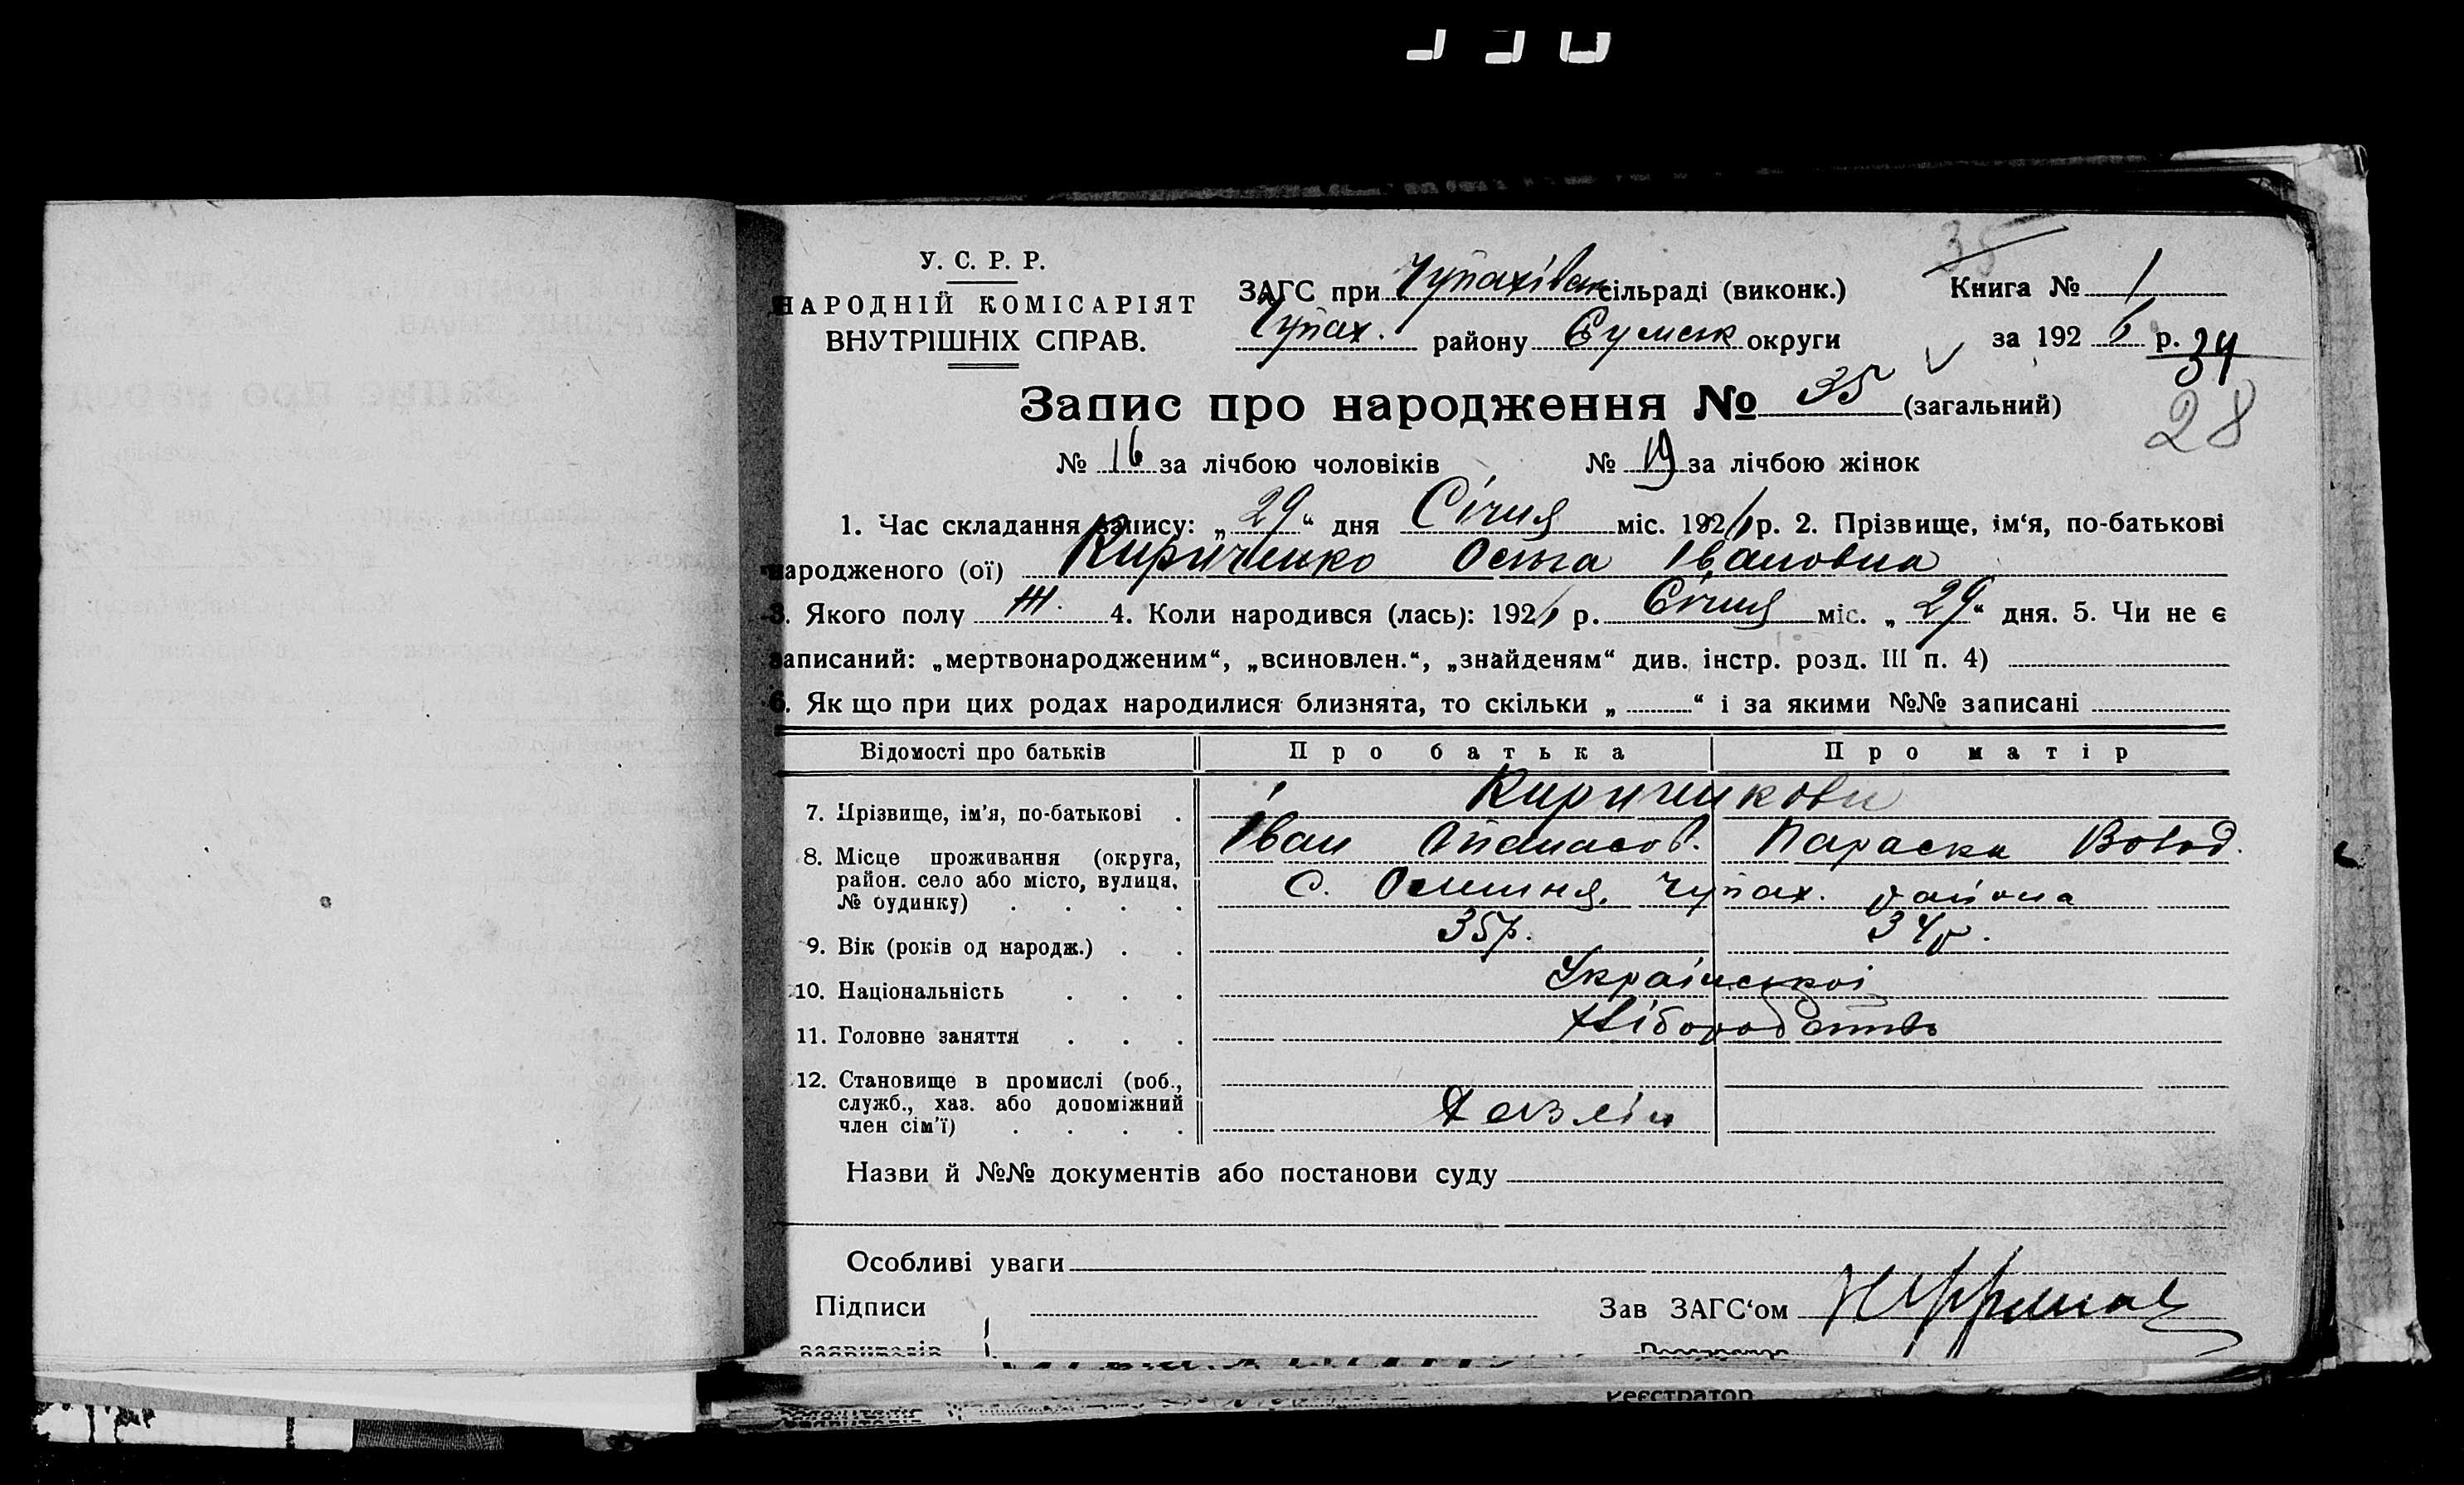 35
У. С. Р. Р.
НАРОДНІЙ КОМІСАРІЯТ
ВНУТРІШНІХ СПРАВ.
ЗАГС при Чупахівськ сільраді (виконк.)
Чупах. району Сумськ округи
Книга № 1
за 1926 р.
34
28
Запис про народження № 35 (загальний)
№ 16 за лічбою чоловіків № 19 за лічбою жінок
1. Час складання запису: „29“ дня Січня міс. 1926 р. 2. Прізвище, ім‘я, по-батькові
народженого (ої) Кириченко Ольга Івановна
3. Якого полу Ж. 4. Коли народився (лась): 1926 р. Січня міс. „29“ дня. 5. Чи не є
записаний: „мертвонародженим“, „всиновлен.“, „знайденям“ див. інстр. розд. III п. 4)
6. Як що при цих родах народилися близнята, то скільки „ “ і за якими №№ записані
Відомості про батьків Про батька Про матір
7. Прізвище, ім’я, по-батькові Кириченкови
Іван Опанасов. Параска Волод.
8. Місце проживання (округа,
район. село або місто, вулиця,
№ будинку)
с. Олешня, Чупах. района
9. Вік (років од народж.) 35р. 34р.
10. Національність Української
11. Головне заняття Хліборобство
12. Становище в промислі (роб.,
служб., хаз. або допоміжний
член сім’ї)
Хазяїн
Назви й №№ документів або постанови суду
Особливі уваги
Підписи Зав ЗАГС‘ом
заявителів
Реєстратор